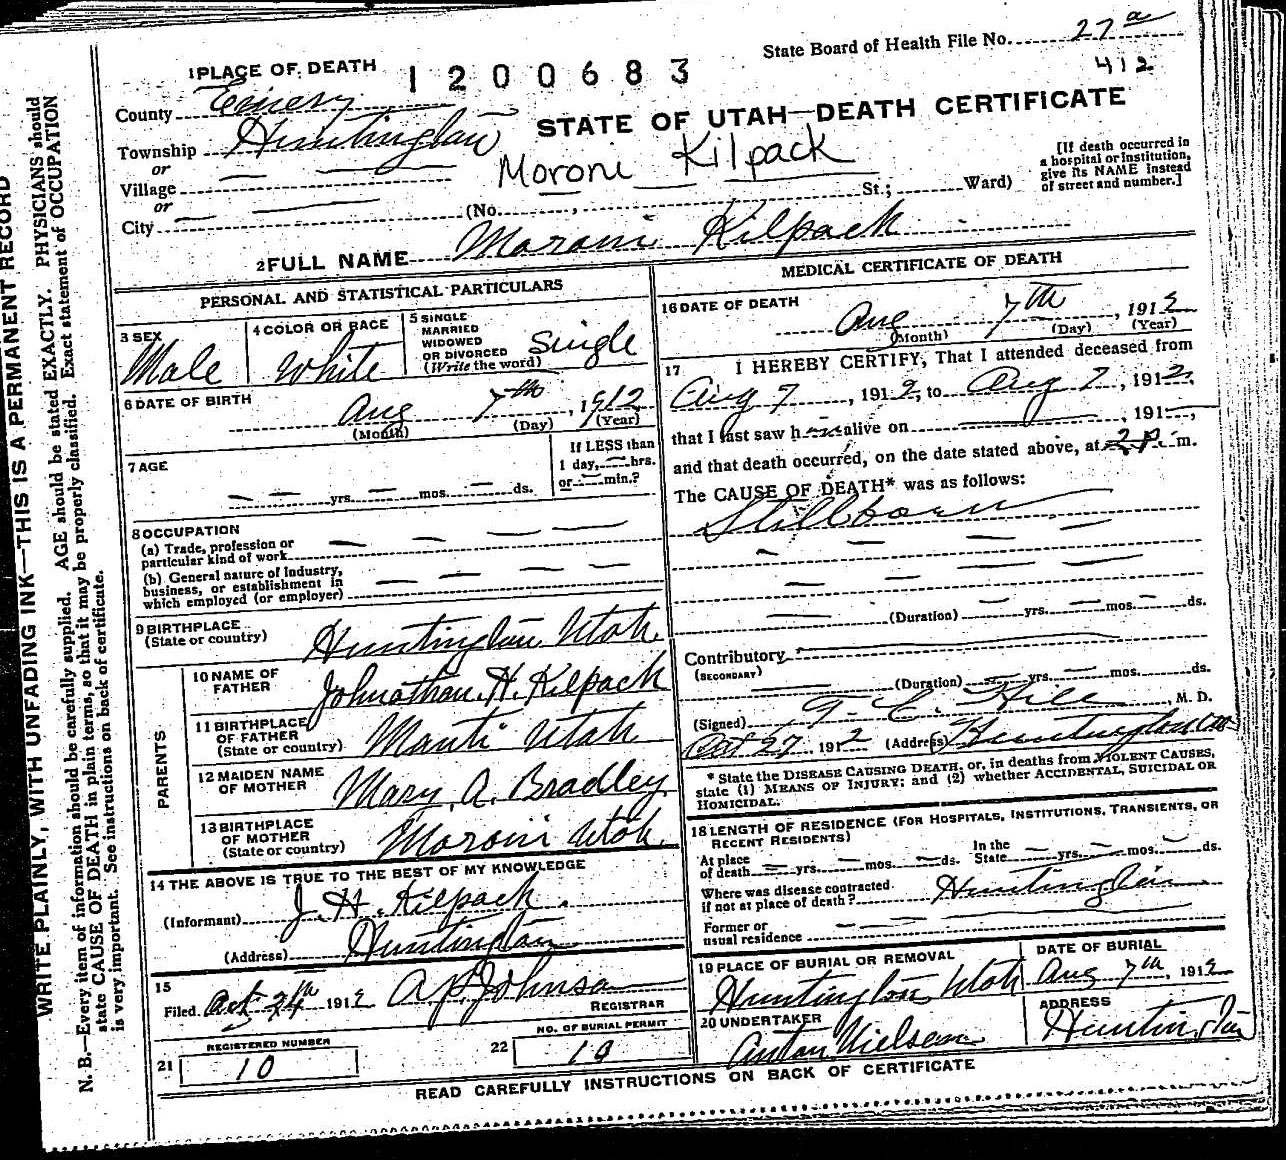 State Board of Health File No. 27 a
412
1 PLACE OF DEATH
1200683
County Emery
STATE OF UTAH—DEATH CERTIFICATE
Township Huntington
or
Village
Moroni Kilpack
or
City (No. , St.; Ward)
[If death occurred in
a hospital or institution,
give its NAME instead
of street and number.]
2 FULL NAME Moroni Kilpack
PERSONAL AND STATISTICAL PARTICULARS
3 SEX
Male
4 COLOR OR RACE
White
5 SINGLE
MARRIED
WIDOWED
OR DIVORCED
(Write the word) Single
6 DATE OF BIRTH
Aug 7th , 1912
(Month) (Day) (Year)
7 AGE
yrs. mos. ds.
If LESS than
1 day, hrs.
or min.?
8 OCCUPATION
(a) Trade, profession or
particular kind of work
(b) General nature of industry,
business, or establishment in
which employed (or employer)
9 BIRTHPLACE
(State or country) Huntington Utah.
PARENTS
10 NAME OF
FATHER Johnathan. H. Kilpack
11 BIRTHPLACE
OF FATHER
(State or country) Manti Utah
12 MAIDEN NAME
OF MOTHER Mary. A. Bradley
13 BIRTHPLACE
OF MOTHER
(State or country) Moroni Utah.
14 THE ABOVE IS TRUE TO THE BEST OF MY KNOWLEDGE
(Informant) J. H. Kilpack.
(Address) Huntington
15
Filed Oct 24th 1912
REGISTRAR
REGISTERED NUMBER
21 10
NO. OF BURIAL PERMIT
22 10
MEDICAL CERTIFICATE OF DEATH
16 DATE OF DEATH
Aug 7th , 1912
(Month) (Day) (Year)
17 I HEREBY CERTIFY, That I attended deceased from
Aug 7 , 1912, to Aug 7 , 1912,
that I last saw h im alive on , 191 ,
and that death occurred, on the date stated above, at 2 P. m.
The CAUSE OF DEATH* was as follows:
Stillborn
(Duration) yrs. mos. ds.
Contributory
(SECONDARY)
(Duration) yrs. mos. ds.
(Signed) T. C. Hill , M. D.
Oct 27, 1912 (Address) Huntington
* State the DISEASE CAUSING DEATH, or, in deaths from VIOLENT CAUSES,
state (1) MEANS OF INJURY; and (2) whether ACCIDENTAL, SUICIDAL OR
HOMICIDAL.
18 LENGTH OF RESIDENCE (FOR HOSPITALS, INSTITUTIONS, TRANSIENTS, OR
RECENT RESIDENTS)
At place
of death yrs. mos. ds.
In the
State yrs. mos. ds.
Where was disease contracted.
if not at place of death? Huntington
Former or
usual residence
19 PLACE OF BURIAL OR REMOVAL
Huntington Utah
DATE OF BURIAL
Aug 7th, 1912
20 UNDERTAKER
Anton Nielsen
ADDRESS
Huntington
READ CAREFULLY INSTRUCTIONS ON BACK OF CERTIFICATE
WRITE PLAINLY, WITH UNFADING INK—THIS IS A PERMANENT RECORD
N. B.—Every item of information should be carefully supplied. AGE should be stated EXACTLY. PHYSICIANS should
state CAUSE OF DEATH in plain terms, so that it may be properly classified. Exact statement of OCCUPATION
is very important. See instructions on back of certificate.